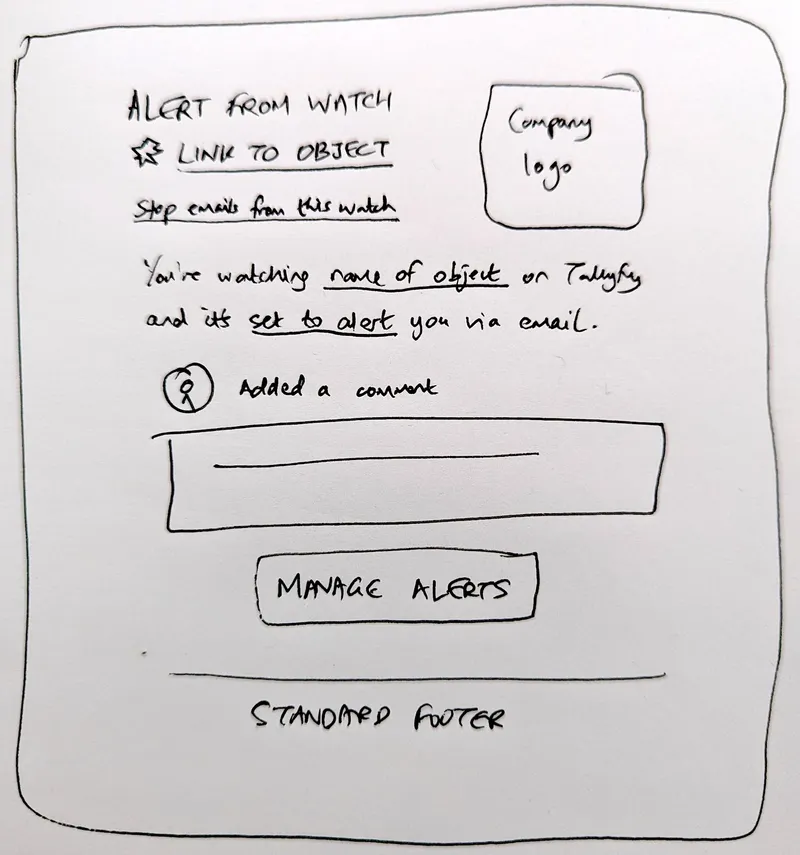 ALERT FROM WATCH
LINK TO OBJECT
Stop emails from this watch
Company
logo
You're watching name of object on Tallyfy
and it's set to alert you via email.
Added a comment
MANAGE ALERTS
STANDARD FOOTER